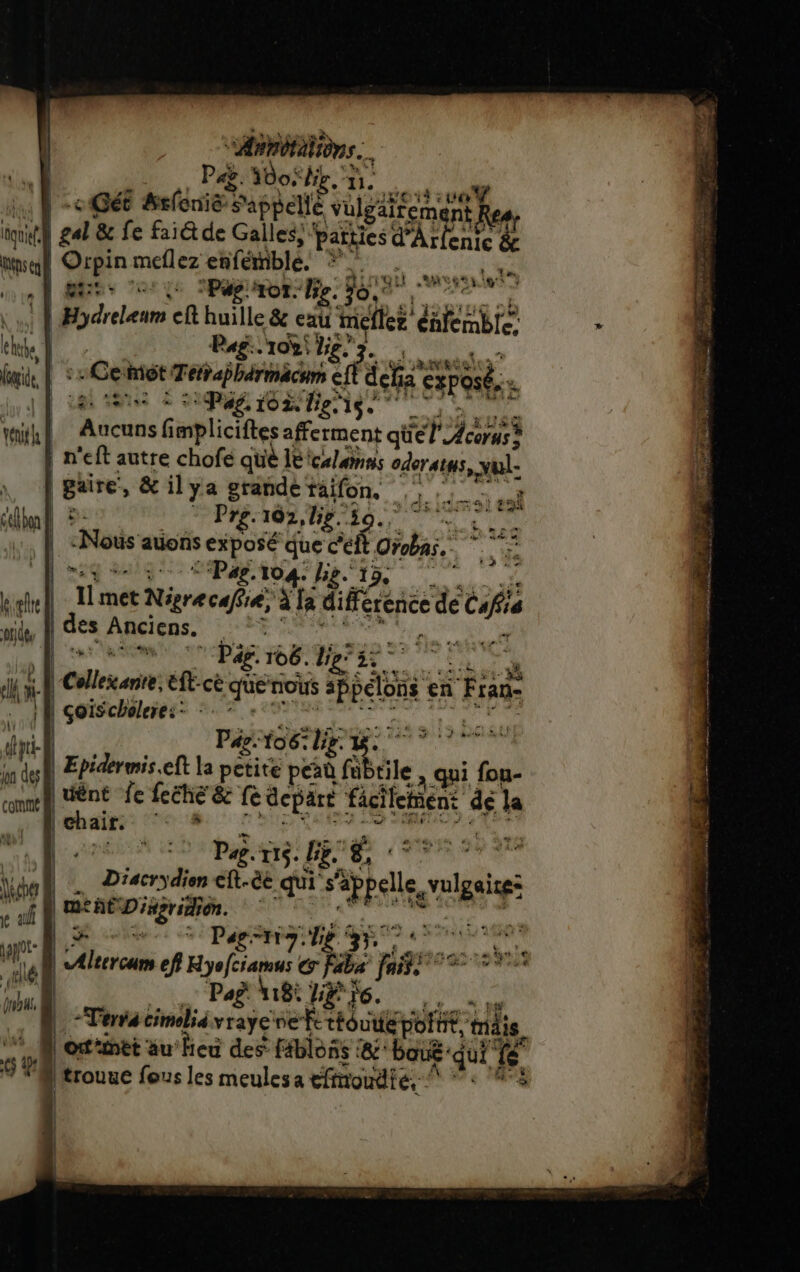 Annotations.
Pag. 100. lig. 11.
Cét Arſenic s'appelle vulgairement Rea-
gal & ſe faict de Galles, parties d'Arſenic &
Orpin meſlez enſemble.
Pag. 101. lig. 30.
Hydreleum eſt huille & eau meſlez enſemble.
Pag. 102. lig. 3.
Ce mot Tetrapharmacum eſt deſia exposé.
Pag. 102. lig. 15.
Aucuns ſimpliciſtes afferment que l'Acorus
n'eſt autre choſe que le calamus odoratus, vul-
gaire, & il y a grande raiſon.
Pag. 102, lig. 19.
Nous auons exposé que c'eſt Orobus.
Pag. 104. lig. 15.
Il met Nigræ caſſiæ, à la difference de Caſſia
des Anciens.
Pag. 106. lig.
Collexante, eſt-ce que nous appelons en Fran-
çois choleres
Pag. 106. lig. 15.
Epidermis. eſt la petite peau ſubtile, qui ſou-
uent ſe ſeche & ſe depart facilement de la
chair.
Pag. 115. lig. 8,
Diacrydion eſt-ce qui s'appelle vulgaire-
ment Diagridion.
Pag. 117. lig. 35.
Altercum eſt Hyoſciamus & Faba ſuis.
Pag. 118. lig. 16.
Terra cimolia vraye ne ſe trouue point, mais
on met au lieu des ſablons & boue qui ſe
trouue ſous les meules a eſmoudre.